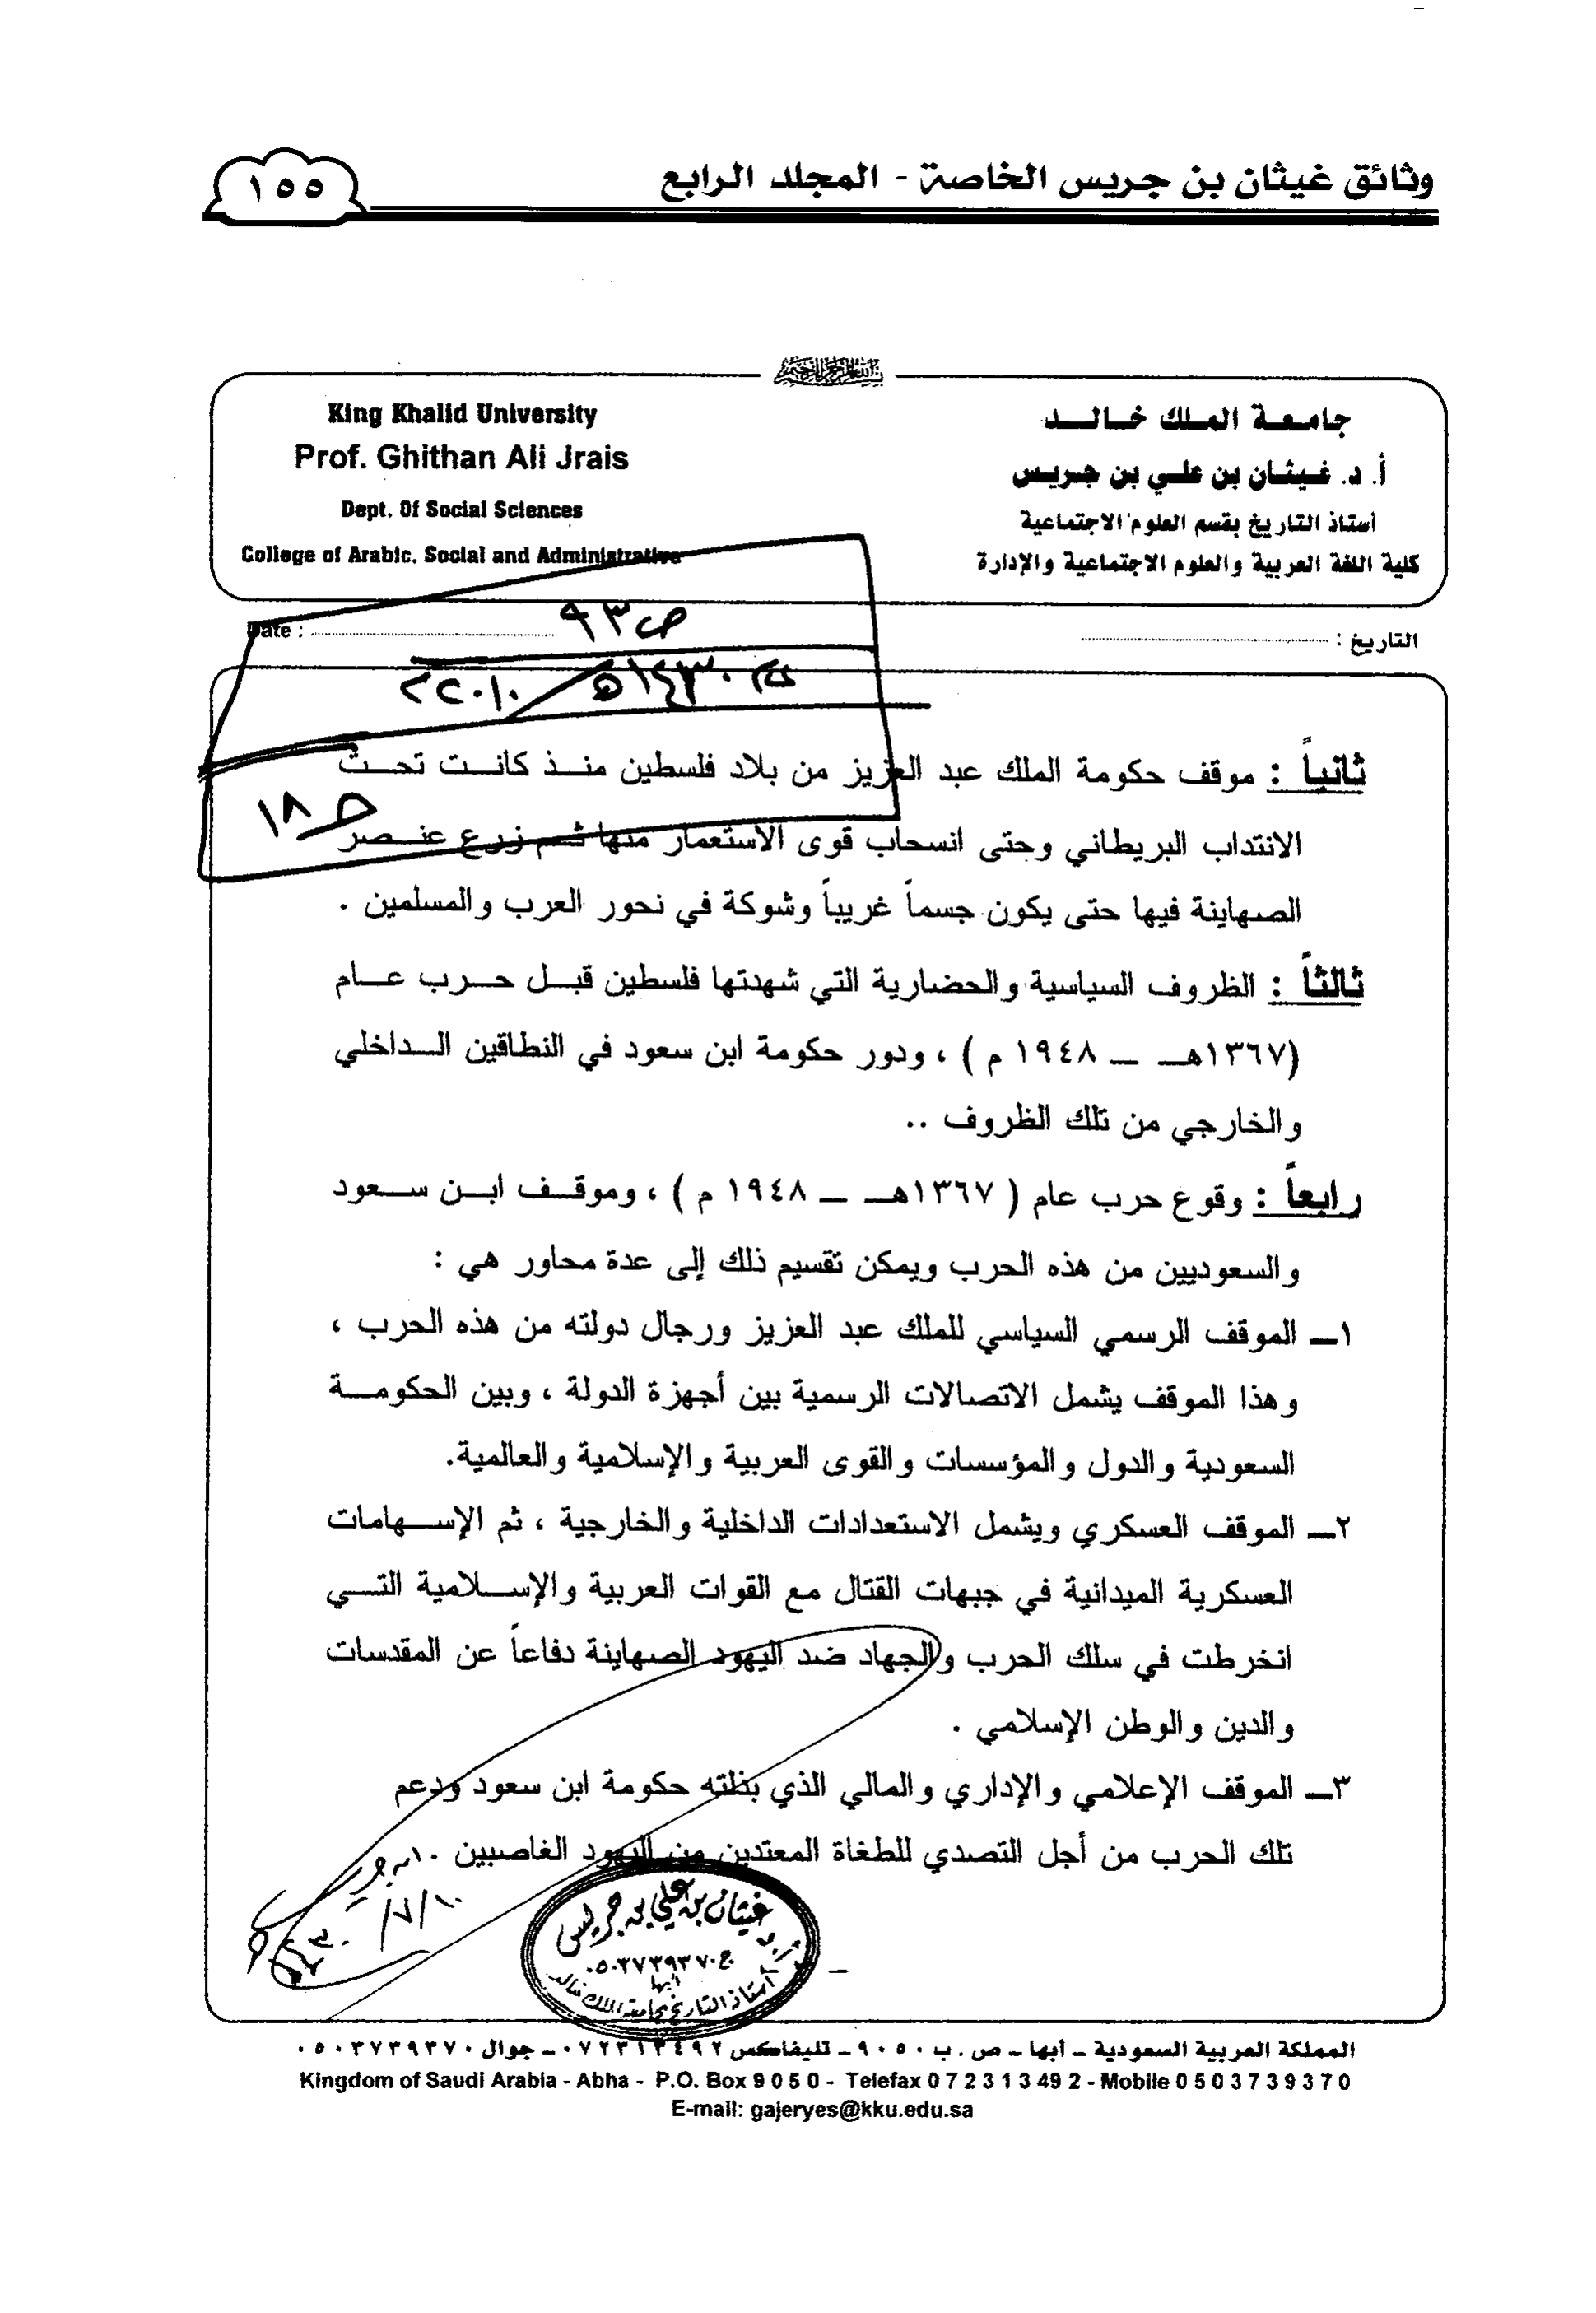 وثائق غيثان بن جريس الخاصة - المجلد الرابع
١٥٥
جامعة الملك خالد
أ. د. غيثان بن علي بن جريس
أستاذ التاريخ بقسم العلوم الاجتماعية
كلية اللغة العربية والعلوم الاجتماعية والإدارة
King Khalid University
Prof. Ghithan Ali Jrais
Dept. Of Social Sciences
College of Arabic. Social and Administrative
التاريخ :
Date :
ص ٩٣
١٤٣٠هـ / ٢٠١٠
ص ١٨
ثانياً : موقف حكومة الملك عبد العزيز من بلاد فلسطين منذ كانت تحت
الانتداب البريطاني وحتى انسحاب قوى الاستعمار منها ثم زرع عنصر
الصهاينة فيها حتى يكون جسماً غريباً وشوكة في نحور العرب والمسلمين .
ثالثاً : الظروف السياسية والحضارية التي شهدتها فلسطين قبل حرب عام
(١٣٦٧هـ – ١٩٤٨ م ) ، ودور حكومة ابن سعود في النطاقين الداخلي
والخارجي من تلك الظروف ..
رابعاً : وقوع حرب عام ( ١٣٦٧هـ – ١٩٤٨ م ) ، وموقف ابن سعود
والسعوديين من هذه الحرب ويمكن تقسيم ذلك إلى عدة محاور هي :
١– الموقف الرسمي السياسي للملك عبد العزيز ورجال دولته من هذه الحرب ،
وهذا الموقف يشمل الاتصالات الرسمية بين أجهزة الدولة ، وبين الحكومة
السعودية والدول والمؤسسات والقوى العربية والإسلامية والعالمية.
٢– الموقف العسكري ويشمل الاستعدادات الداخلية والخارجية ، ثم الإسهامات
العسكرية الميدانية في جبهات القتال مع القوات العربية والإسلامية التي
انخرطت في سلك الحرب والجهاد ضد اليهود الصهاينة دفاعاً عن المقدسات
والدين والوطن الإسلامي .
٣– الموقف الإعلامي والإداري والمالي الذي بذلته حكومة ابن سعود ودعم
تلك الحرب من أجل التصدي للطغاة المعتدين من اليهود الغاصبين .
ابن جريس
١٠/٧/١٤٣٠
أ.د غيثان بن علي بن جريس
ج.٠٥٠٣٧٣٩٣٧٠
أبها
أستاذ التاريخ بجامعة الملك خالد
المملكة العربية السعودية – أبها – ص . ب ٩٠٥٠ – تليفاكس ٠٧٢٣١٣٤٩٢ – جوال ٠٥٠٣٧٣٩٣٧٠
Kingdom of Saudi Arabia - Abha - P.O. Box 9 0 5 0 - Telefax 0 7 2 3 1 3 49 2 - Mobile 0 5 0 3 7 3 9 3 7 0
E-mail: gajeryes@kku.edu.sa